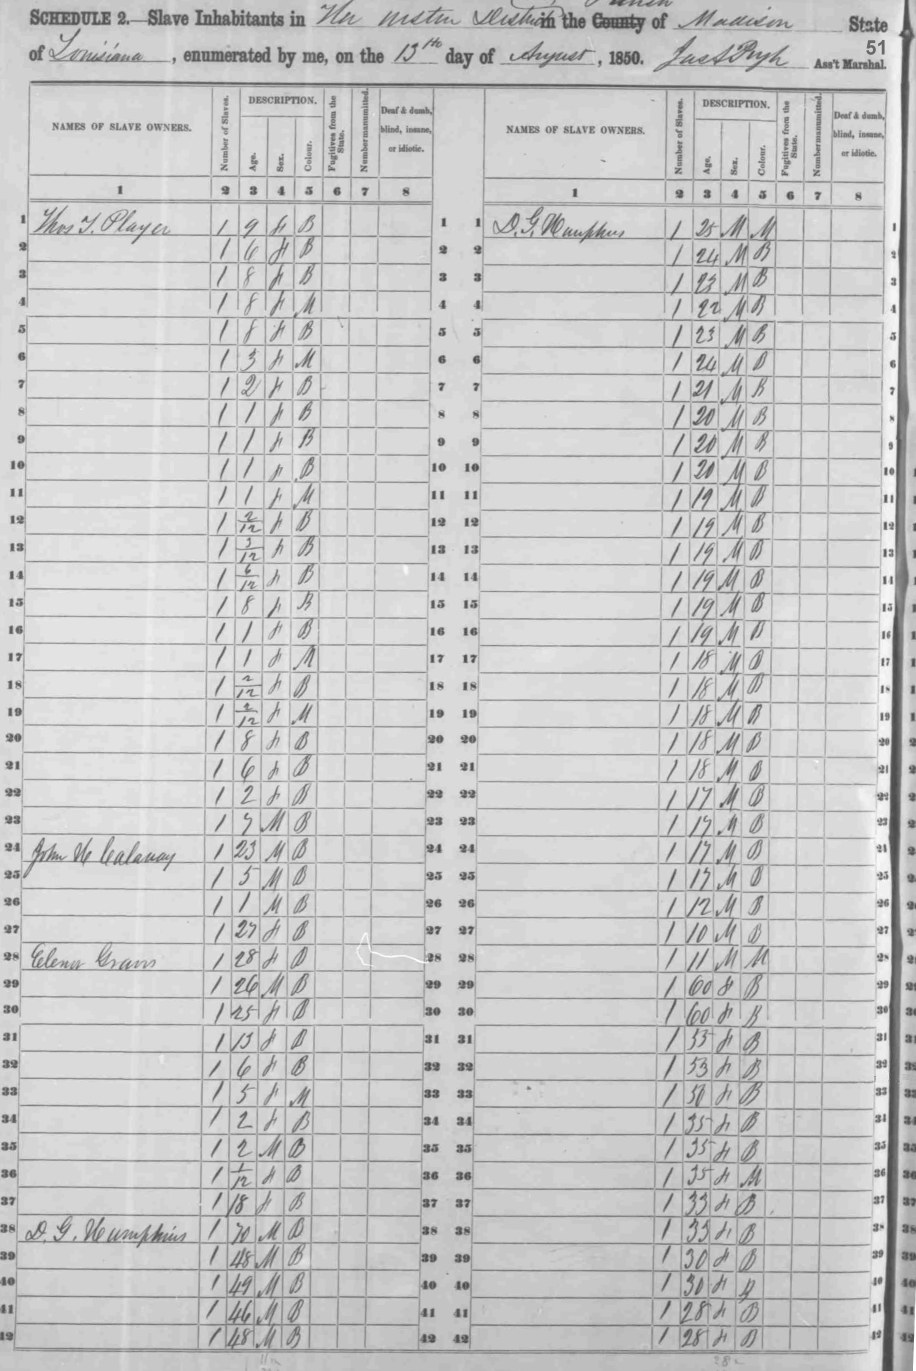 SCHEDULE 2.—Slave Inhabitants in Western District in the County Parish of Madison State
of Louisiana, enumerated by me, on the 13th day of August, 1850. Jas A Pugh Ass't Marshal.
51
NAMES OF SLAVE OWNERS. Number of Slaves. DESCRIPTION. Age. Sex. Colour. Fugitives from the State. Number manumitted. Deaf & dumb, blind, insane, or idiotic.
NAMES OF SLAVE OWNERS. Number of Slaves. DESCRIPTION. Age. Sex. Colour. Fugitives from the State. Number manumitted. Deaf & dumb, blind, insane, or idiotic.
1 2 3 4 5 6 7 8 1 2 3 4 5 6 7 8
1 Thos T. Player 1 9 f B 1 1 D. G. Humphies 1 25 M M 1
2 1 6 f B 2 2 1 24 M B 2
3 1 8 f B 3 3 1 23 M B 3
4 1 8 f M 4 4 1 22 M B 4
5 1 8 f B 5 5 1 23 M B 5
6 1 3 f M 6 6 1 24 M B 6
7 1 2 f B 7 7 1 21 M B 7
8 1 1 f B 8 8 1 20 M B 8
9 1 1 f B 9 9 1 20 M B 9
10 1 1 f B 10 10 1 20 M B 10
11 1 1 f M 11 11 1 19 M B 11
12 1 2/12 f B 12 12 1 19 M B 12
13 1 3/12 f B 13 13 1 19 M B 13
14 1 6/12 f B 14 14 1 19 M B 14
15 1 8 f B 15 15 1 19 M B 15
16 1 1 f B 16 16 1 19 M B 16
17 1 1 f M 17 17 1 18 M B 17
18 1 2/12 f B 18 18 1 18 M B 18
19 1 2/12 f M 19 19 1 18 M B 19
20 1 8 f B 20 20 1 18 M B 20
21 1 6 f B 21 21 1 18 M B 21
22 1 2 f B 22 22 1 17 M B 22
23 1 7 M B 23 23 1 17 M B 23
24 John H Calaway 1 23 M B 24 24 1 17 M B 24
25 1 5 M B 25 25 1 17 M B 25
26 1 1 M B 26 26 1 12 M B 26
27 1 27 f B 27 27 1 10 M B 27
28 Elenor Graves 1 28 f B 28 28 1 11 M M 28
29 1 26 M B 29 29 1 60 f B 29
30 1 25 f B 30 30 1 60 f B 30
31 1 13 f B 31 31 1 55 f B 31
32 1 6 f B 32 32 1 53 f B 32
33 1 5 f M 33 33 1 50 f B 33
34 1 2 f B 34 34 1 35 f B 34
35 1 2 M B 35 35 1 35 f B 35
36 1 1/12 f B 36 36 1 35 f M 36
37 1 18 f B 37 37 1 33 f B 37
38 D. G. Humphies 1 70 M B 38 38 1 33 f B 38
39 1 48 M B 39 39 1 30 f B 39
40 1 49 M B 40 40 1 30 f B 40
41 1 46 M B 41 41 1 28 f B 41
42 1 48 M B 42 42 1 28 f B 42